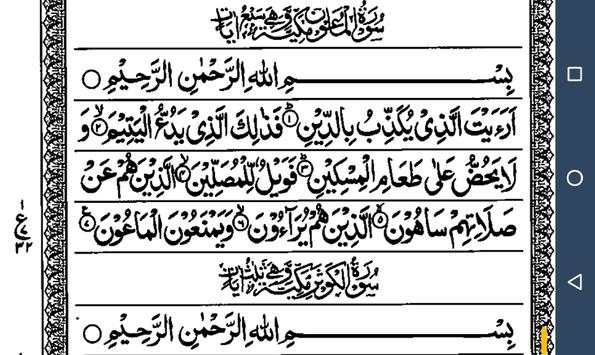 سُوْرَةُ الْمَاعُوْنِ مَكِّيَّةٌ وَّهِيَ سَبْعُ اٰيَاتٍ
بِسْــــــــمِ اللّٰهِ الرَّحْمٰنِ الرَّحِيْمِ ○
اَرَءَيْتَ الَّذِىْ يُكَذِّبُ بِالدِّيْنِ ؕ‏﴿۱﴾ فَذٰلِكَ الَّذِىْ يَدُعُّ الْيَتِيْمَ ۙ‏﴿۲﴾ وَ
لَا يَحُضُّ عَلٰى طَعَامِ الْمِسْكِيْنِ ؕ‏﴿۳﴾ فَوَيْلٌ لِّلْمُصَلِّيْنَ ۙ‏﴿۴﴾ الَّذِيْنَ هُمْ عَنْ
صَلَاتِهِمْ سَاهُوْنَ ۙ‏﴿۵﴾ الَّذِيْنَ هُمْ يُرَآءُوْنَ ۙ‏﴿۶﴾ وَيَمْنَعُوْنَ الْمَاعُوْنَ‏﴿۷﴾
ع
۷
۳۲
سُوْرَةُ الْكَوْثَرِ مَكِّيَّةٌ وَّهِيَ ثَلٰثُ اٰيَاتٍ
بِسْــــــــمِ اللّٰهِ الرَّحْمٰنِ الرَّحِيْمِ ○